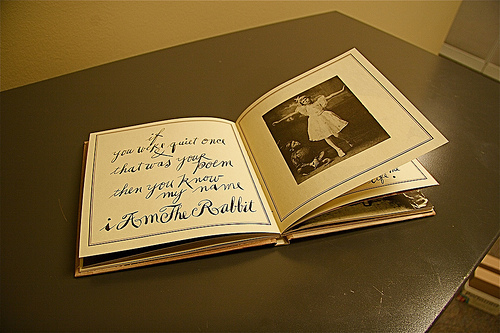 if
you were quiet once
that was your poem
then you know
my name
i Am The Rabbit